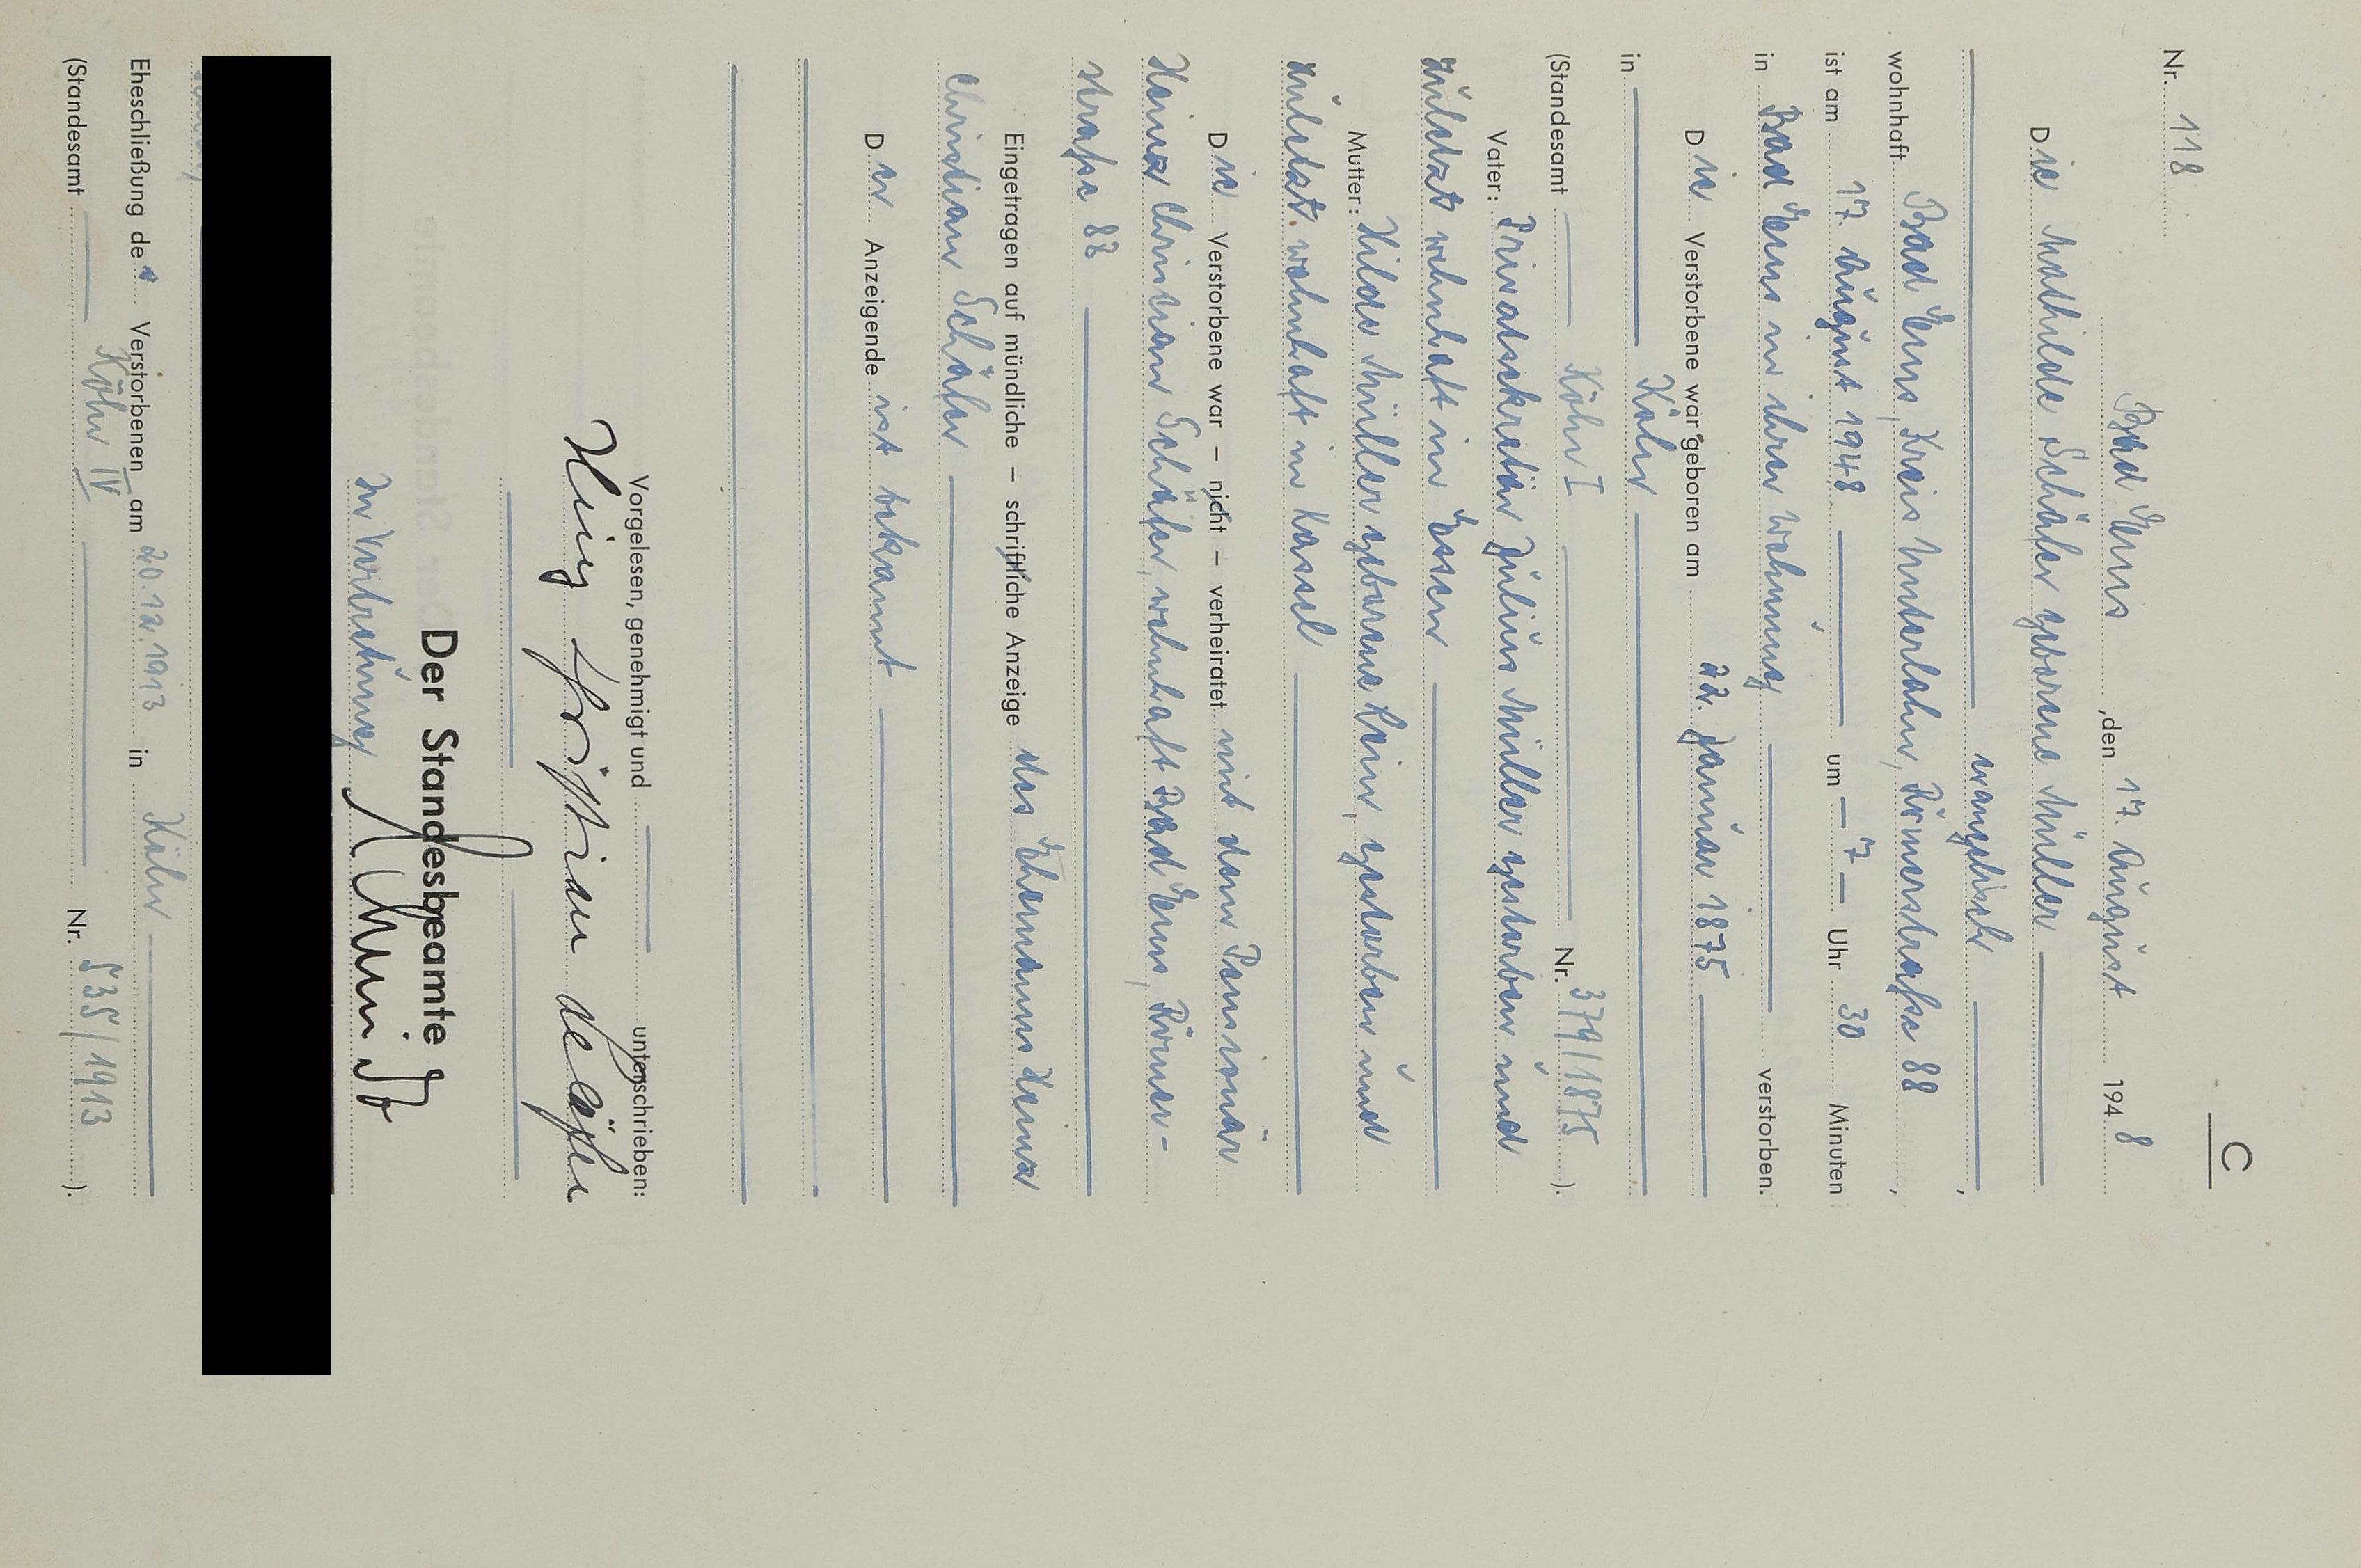 C
Nr. 118
Bad Ems, den 17. August 1948
Die Mathilde Schäfer geborene Müller
evangelisch,
wohnhaft Bad Ems, Kreis Unterlahn, Römerstraße 88,
ist am 17. August 1948 um 7 Uhr 30 Minuten
in Bad Ems in ihrer Wohnung verstorben.
Die Verstorbene war geboren am 22. Januar 1875
in Köln
(Standesamt Köln I Nr. 379/1875).
Vater: Privatsekretär Julius Müller gestorben und
zuletzt wohnhaft in Essen
Mutter: Hilda Müller geborene Klein, gestorben und
zuletzt wohnhaft in Kassel
Die Verstorbene war – nicht – verheiratet mit dem Pensionär
Heinz Christian Schäfer, wohnhaft Bad Ems, Römer-
straße 88
Eingetragen auf mündliche – schriftliche Anzeige des Ehemanns Heinz
Christian Schäfer
Der Anzeigende ist bekannt
Vorgelesen, genehmigt und unterschrieben:
Heinz Christian Schäfer
Der Standesbeamte
In Vertretung
Eheschließung der Verstorbenen am 20.12.1913 in Köln
(Standesamt Köln IV Nr. 535/1913).